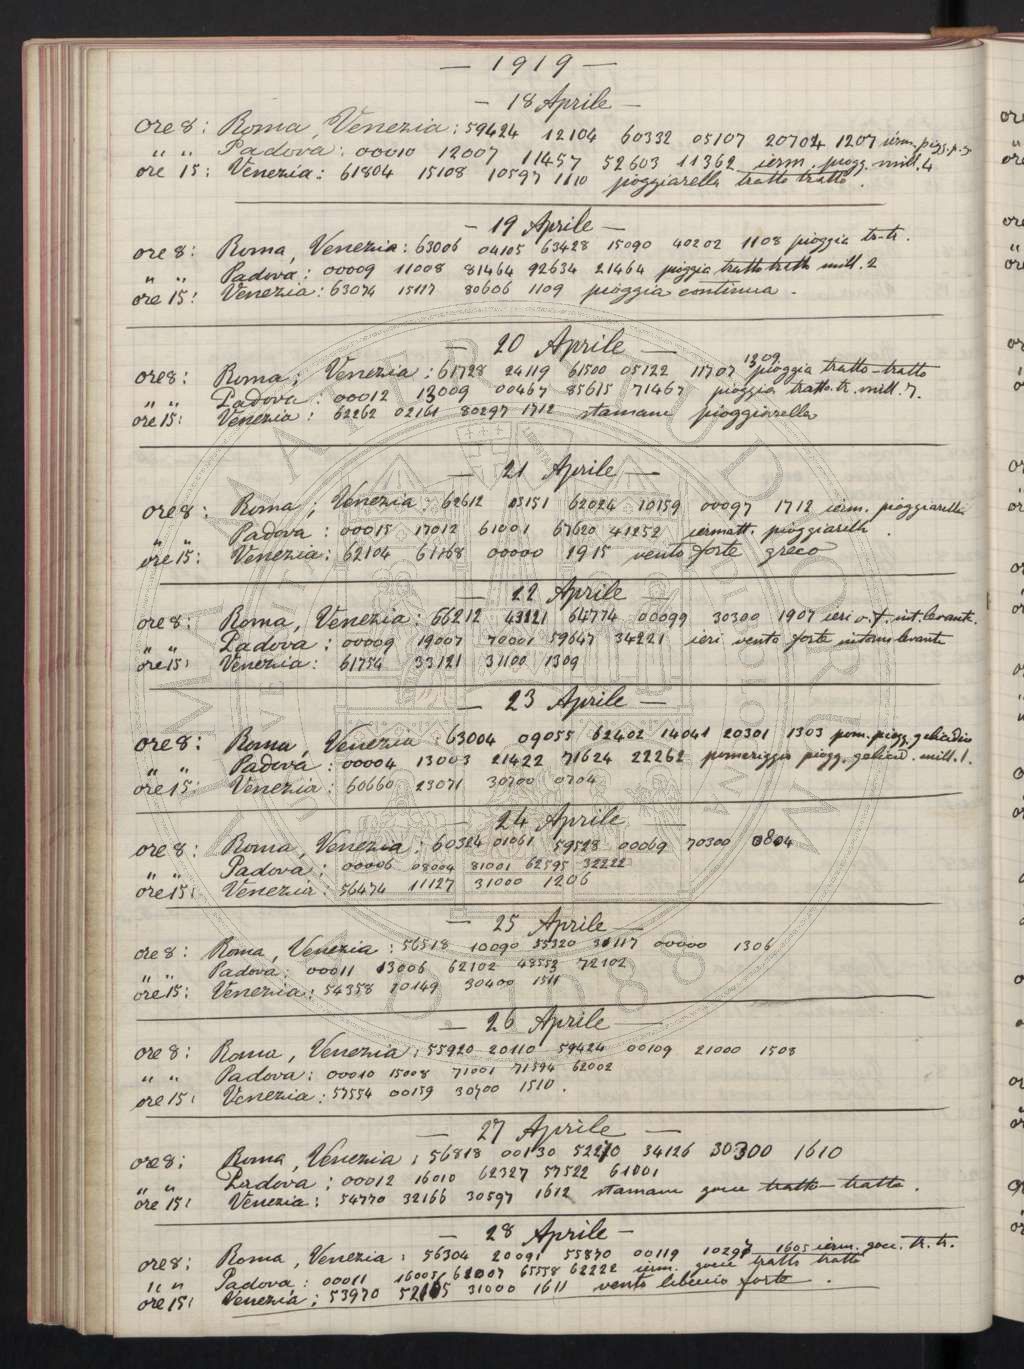 — 1919 —
— 18 Aprile —
ore 8: Roma, Venezia: 59424 12104 60332 05107 20702 1207 ierm. piog. p. p.
" " Padova: 00010 12007 11457 52603 11362 ierm. piogg. mill. 4
ore 15: Venezia: 61804 15108 10597 1110 pioggiarella tratto tratto.
— 19 Aprile —
ore 8: Roma, Venezia: 63006 04105 63428 15090 40202 1108 pioggia tr-tr.
" " Padova: 00009 11008 81464 92634 21464 pioggia tratto tratto mill. 2
ore 15: Venezia: 63074 15117 80606 1109 pioggia continua.
— 20 Aprile —
ore 8: Roma, Venezia: 61728 24119 61500 05122 11707 1309 pioggia tratto-tratto
" " Padova: 00012 13009 00467 85615 71467 pioggia tratto.tr. mill. 7.
ore 15: Venezia: 62262 02161 80297 1712 stamane pioggiarella
— 21 Aprile —
ore 8: Roma, Venezia: 62612 05151 62024 10159 00097 1712 ierm. pioggiarella
" " Padova: 00015 17012 61001 67620 41252 iermatt. pioggiarella.
ore 15: Venezia: 62104 61168 00000 1915 vento forte greco
— 22 Aprile —
ore 8: Roma, Venezia: 56212 43121 64774 00099 30300 1907 ieri v. f. int. levante.
" " Padova: 00009 19007 70001 59647 34221 ieri vento forte intorno levante
ore 15: Venezia: 61754 33121 31100 1309
— 23 Aprile —
ore 8: Roma, Venezia: 63004 09055 62402 14041 20301 1303 pom. piogg. gelicidio
" " Padova: 00004 13003 21422 71624 22262 pomeriggio piogg. gelicid. mill. 1.
ore 15: Venezia: 60660 23071 30700 0704
— 24 Aprile —
ore 8: Roma, Venezia: 60324 01061 59528 00069 70300 0804
" " Padova: 00006 08004 81001 62595 32222
ore 15: Venezia: 56474 11127 31000 1206
— 25 Aprile —
ore 8: Roma, Venezia: 56518 10090 55320 31117 00000 1306
" " Padova: 00011 13006 62102 48553 72102
ore 15: Venezia: 54358 20149 30400 1511
— 26 Aprile —
ore 8: Roma, Venezia: 55920 20110 59424 00109 21000 1508
" " Padova: 00010 15008 71001 71594 62002
ore 15: Venezia: 57554 00159 30700 1510.
— 27 Aprile —
ore 8: Roma, Venezia: 56818 00130 52270 34126 30300 1610
" " Padova: 00012 16010 62327 57522 61001
ore 15: Venezia: 54770 32166 30597 1612 stamane gocce tratto-tratto.
— 28 Aprile —
ore 8: Roma, Venezia: 56304 20091 55870 00119 10297 1605 ierm. gocc. tr. tr.
" " Padova: 00011 16005 62007 65558 62222 ierm. gocce tratto tratto
ore 15: Venezia: 53970 52165 31000 1611 vento libeccio forte.